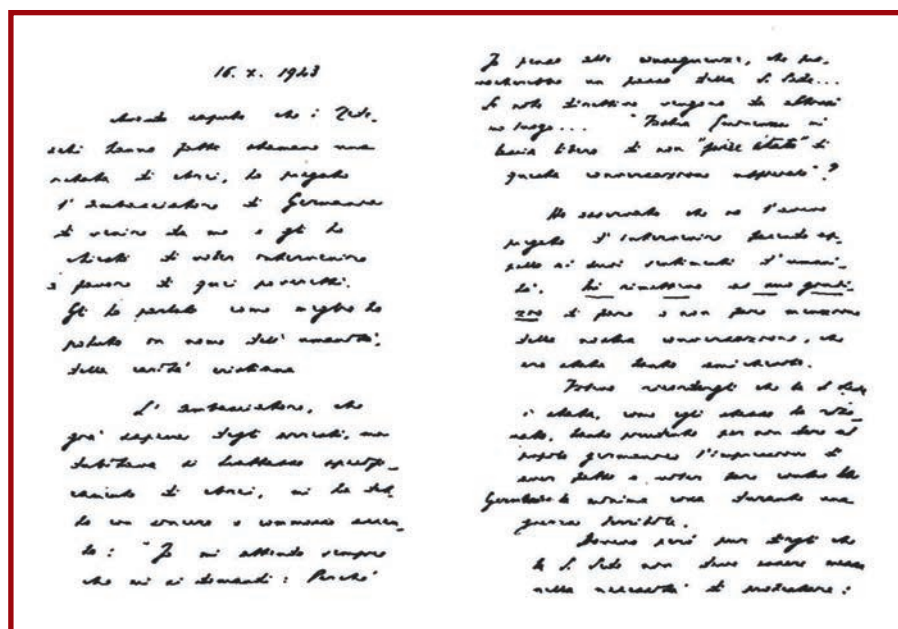 16. X. 1943
Avendo saputo che i Tede-
schi hanno fatto stamane una
retata di ebrei, ho pregato
l'Ambasciatore di Germania
di venire da me e gli ho
chiesto di voler intervenire
a favore di quei poveretti.
Gli ho parlato come meglio ho
potuto in nome dell'umanità,
della carità cristiana
L'Ambasciatore, che
già sapeva degli arresti, ma
dubitava si trattasse specifi-
camente di ebrei, mi ha det-
to con sincero e commosso accen-
to: "Io mi attendo sempre
che mi si domandi: Perché
Io penso alle conseguenze, che pro-
vocherebbe un passo della S. Sede...
Le note direttive vengono da altissi
mo luogo... "Vostra Eminenza mi
lascia libero di non "faire état" di
questa conversazione ufficiale"?
Ho osservato che io l'avevo
pregato d'intervenire facendo ap-
pello ai suoi sentimenti d'umani-
tà. Mi rimettevo al suo giudi-
zio di fare o non fare menzione
della nostra conversazione, che
era stata tanto amichevole.
Volevo ricordargli che la S. Sede
è stata, come egli stesso ha rile-
vato, tanto prudente per non dare al
popolo germanico l'impressione di
aver fatto o voler fare contro la
Germania la minima cosa durante una
guerra terribile.
Dovevo però pur dirgli che
la S. Sede non deve essere messa
nella necessità di protestare: